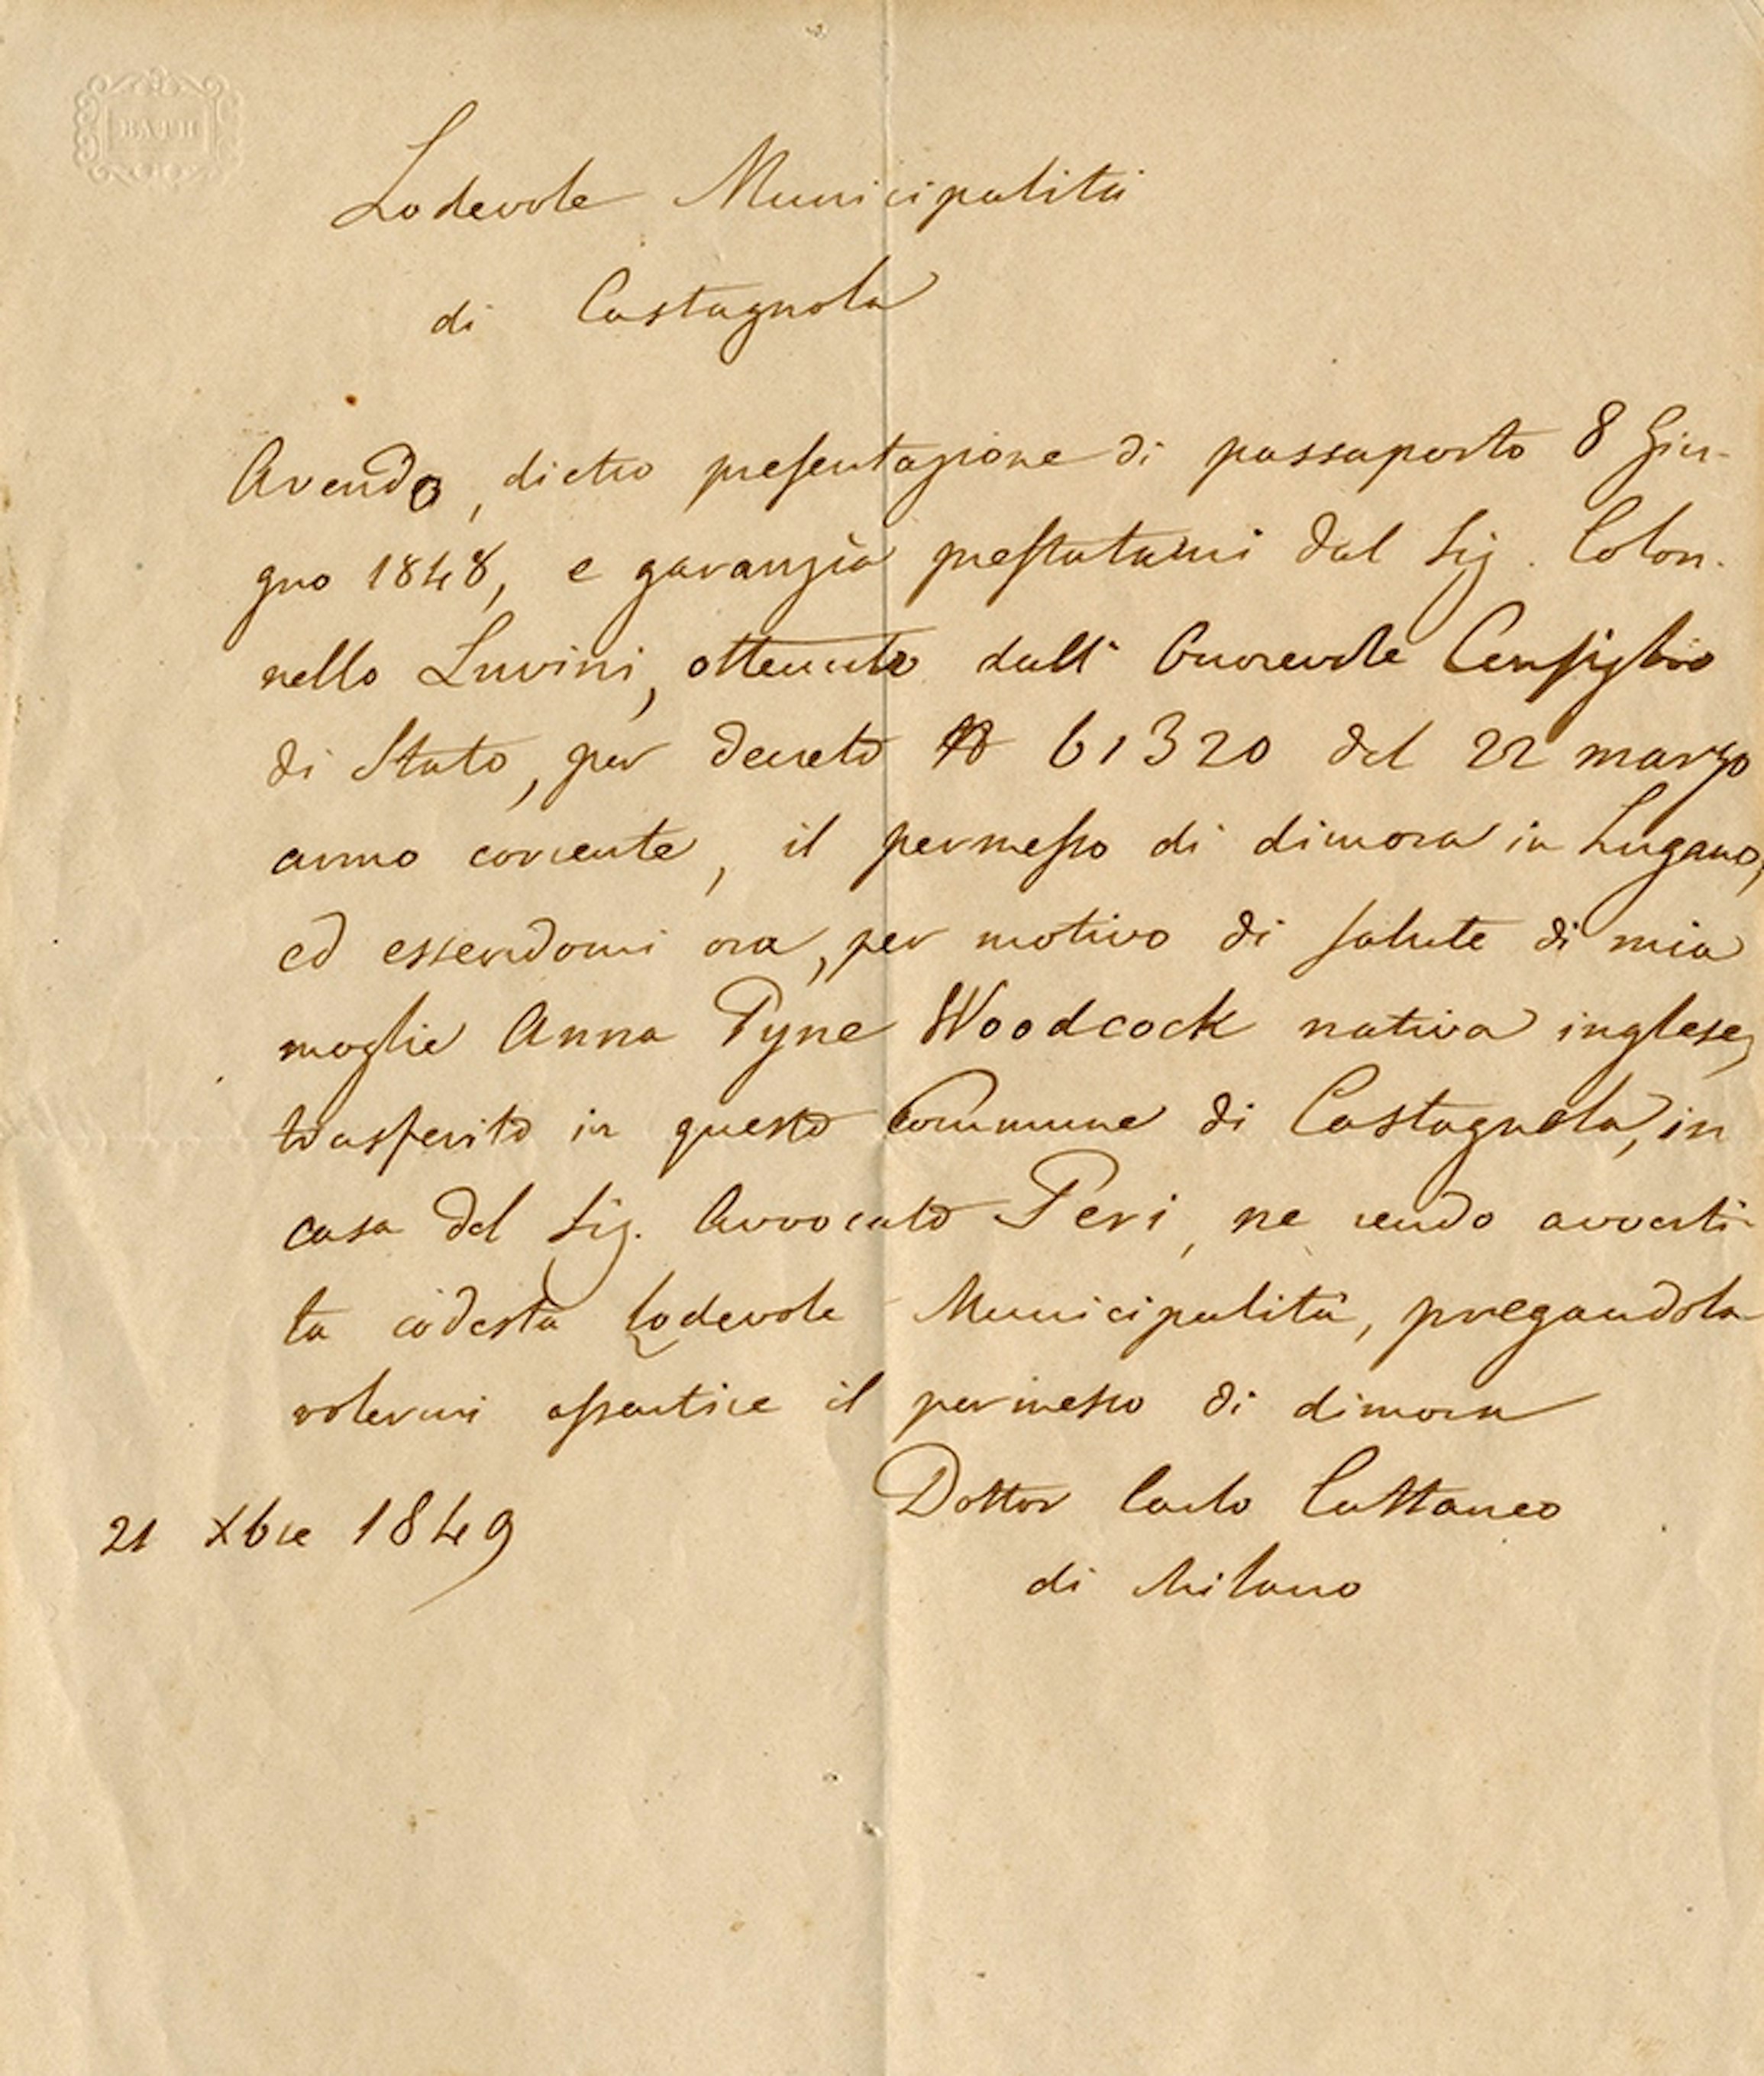 BATH
Lodevole Municipalità
di Castagnola
Avendo, dietro presentazione di passaporto 8 Giu-
gno 1848, e garanzia prestatami dal Sig. Colon-
nello Luvini, ottenuto dall' Onorevole Consiglio
di Stato, per decreto N 61320 del 22 marzo
anno corrente, il permesso di dimora in Lugano,
ed essendomi ora, per motivo di salute di mia
moglie Anna Pyne Woodcock nativa inglese,
trasferito in questo Commune di Castagnola, in
casa del Sig. Avvocato Peri, ne rendo avverti-
ta codesta lodevole Municipalità, pregandola
volermi assentire il permesso di dimora
Dottor Carlo Cattaneo
di Milano
21 Xbre 1849